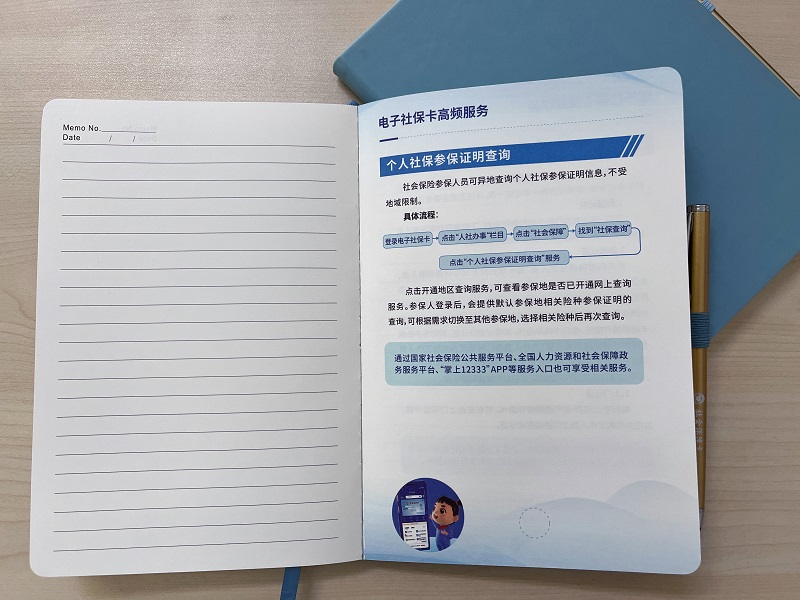 Memo No.
Date / /
电子社保卡高频服务
个人社保参保证明查询
社会保险参保人员可异地查询个人社保参保证明信息,不受
地域限制。
具体流程:
登录电子社保卡 点击“人社办事”栏目 点击“社会保障” 找到“社保查询”
点击“个人社保参保证明查询”服务
点击开通地区查询服务,可查看参保地是否已开通网上查询
服务。参保人登录后,会提供默认参保地相关险种参保证明的
查询,可根据需求切换至其他参保地,选择相关险种后再次查询。
通过国家社会保险公共服务平台、全国人力资源和社会保障政
务服务平台、“掌上12333”APP等服务入口也可享受相关服务。